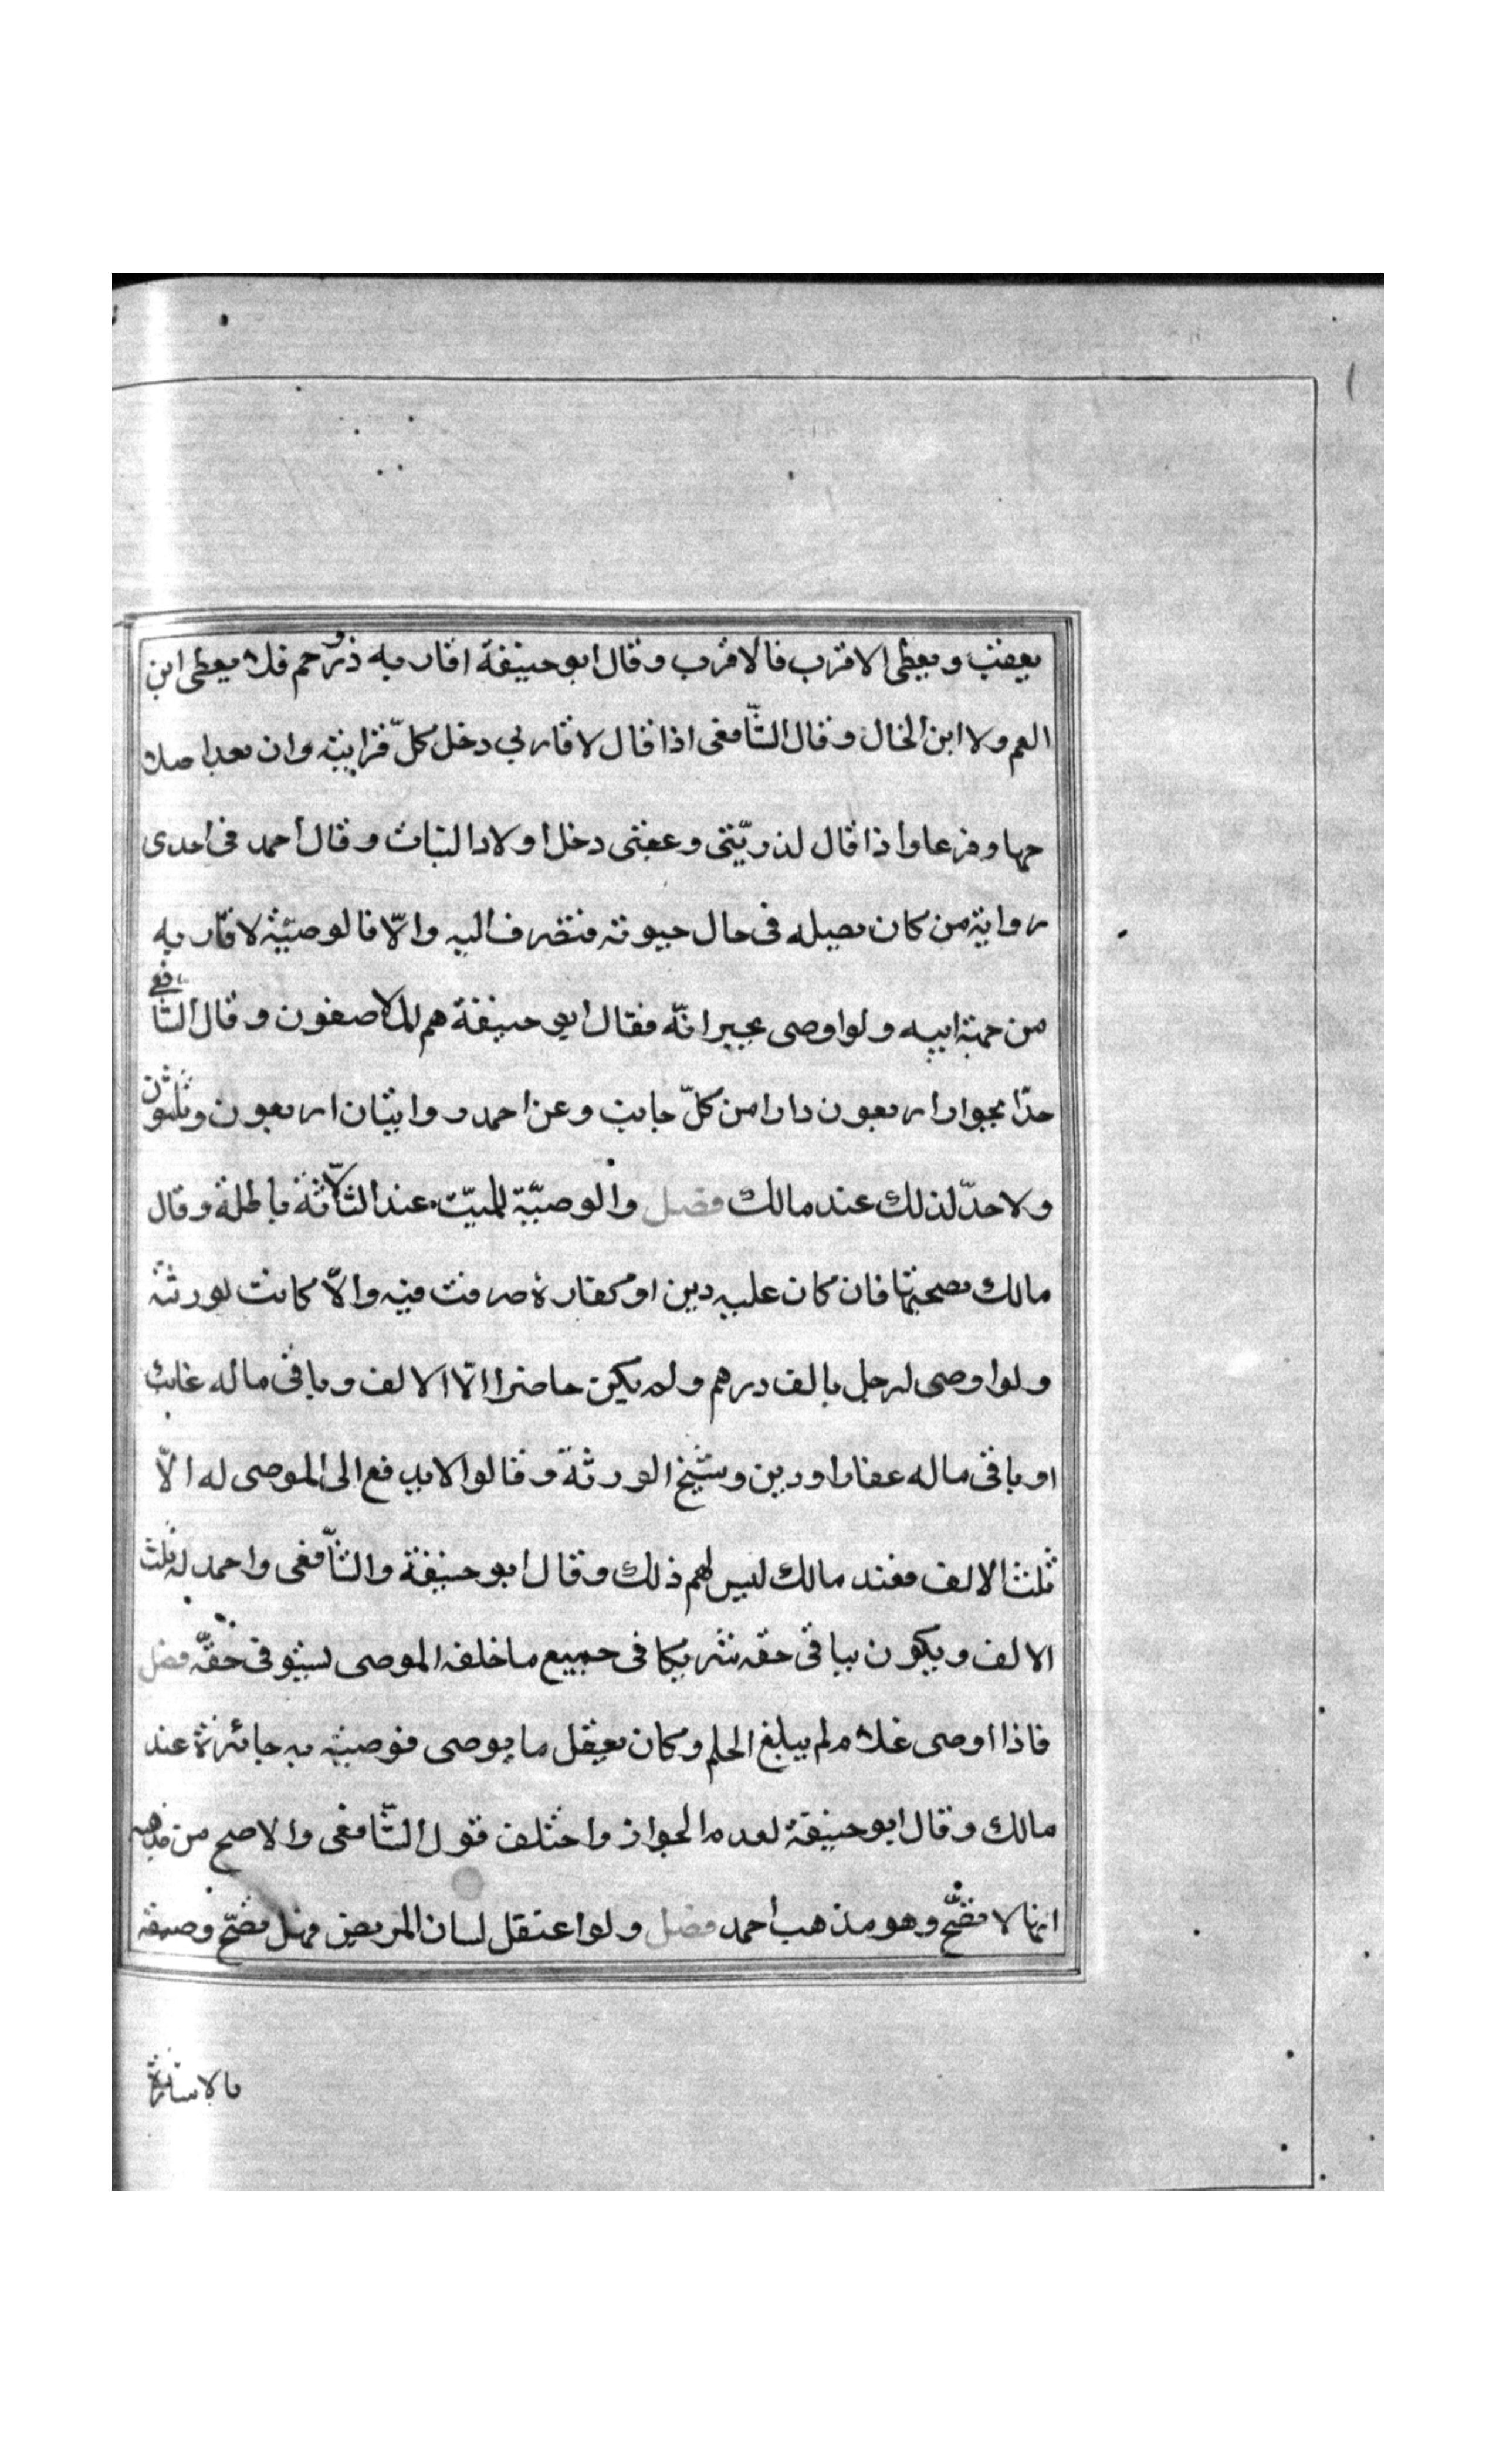 يعقب ويعطى الاقرب فالاقرب وقال ابو حنيفة اقاربه ذو رحم فلا يعطى ابن
العم ولا ابن الخال وقال الشّافعى اذا قال لاقاربي دخل كلّ قرابته وان بعد اصلا
وفرعا واذا قال لذريّتى وعقبى دخل اولاد البنات وقال أحمد فى احدى
رواية من كان يصله فى حال حيوته فتصرف اليه والّا فالوصيّة لاقاربه
من جهة ابيه ولو اوصى بجيرانّه فقال ابو حنيفة هم الملاصقون وقال الشّافعى
حدّا بجوار اربعون دارا من كلّ جانب وعن احمد روايتان اربعون وثلثون
ولا حدّ لذلك عند مالك فصل والوصيّة للميّت عند الثّلاثة باطلة وقال
مالك بصحيتها فان كان عليه دين او كفارة صرفت فيه والّا كانت لورثته
ولو اوصى لرجل بالف درهم ولم يكن حاضرا الّا الالف وباقى ماله غائب
او باقى ماله عقارا ودين وشيخ الورثة وقالوا لا يدفع الى الموصى له الّا
ثلث الالف فعند مالك ليس لهم ذلك وقال ابو حنيفة والشّافعى واحمد له ثلث
الالف ويكون بباقى حقه شريكا فى جميع ما خلفه الموصى يستوفى حقّه فصل
فاذا اوصى غلام لم يبلغ الحلم وكان يعقل ما يوصى فوصيته به جائزة عند
مالك وقال ابو حنيفة بعدم الجواز واختلف قول الشّافعى والاصح من مذهبه
انها لا تصّح وهو مذهب أحمد فصل ولو اعتقل لسان المريض فهل تصّح وصيته
بالاشارة